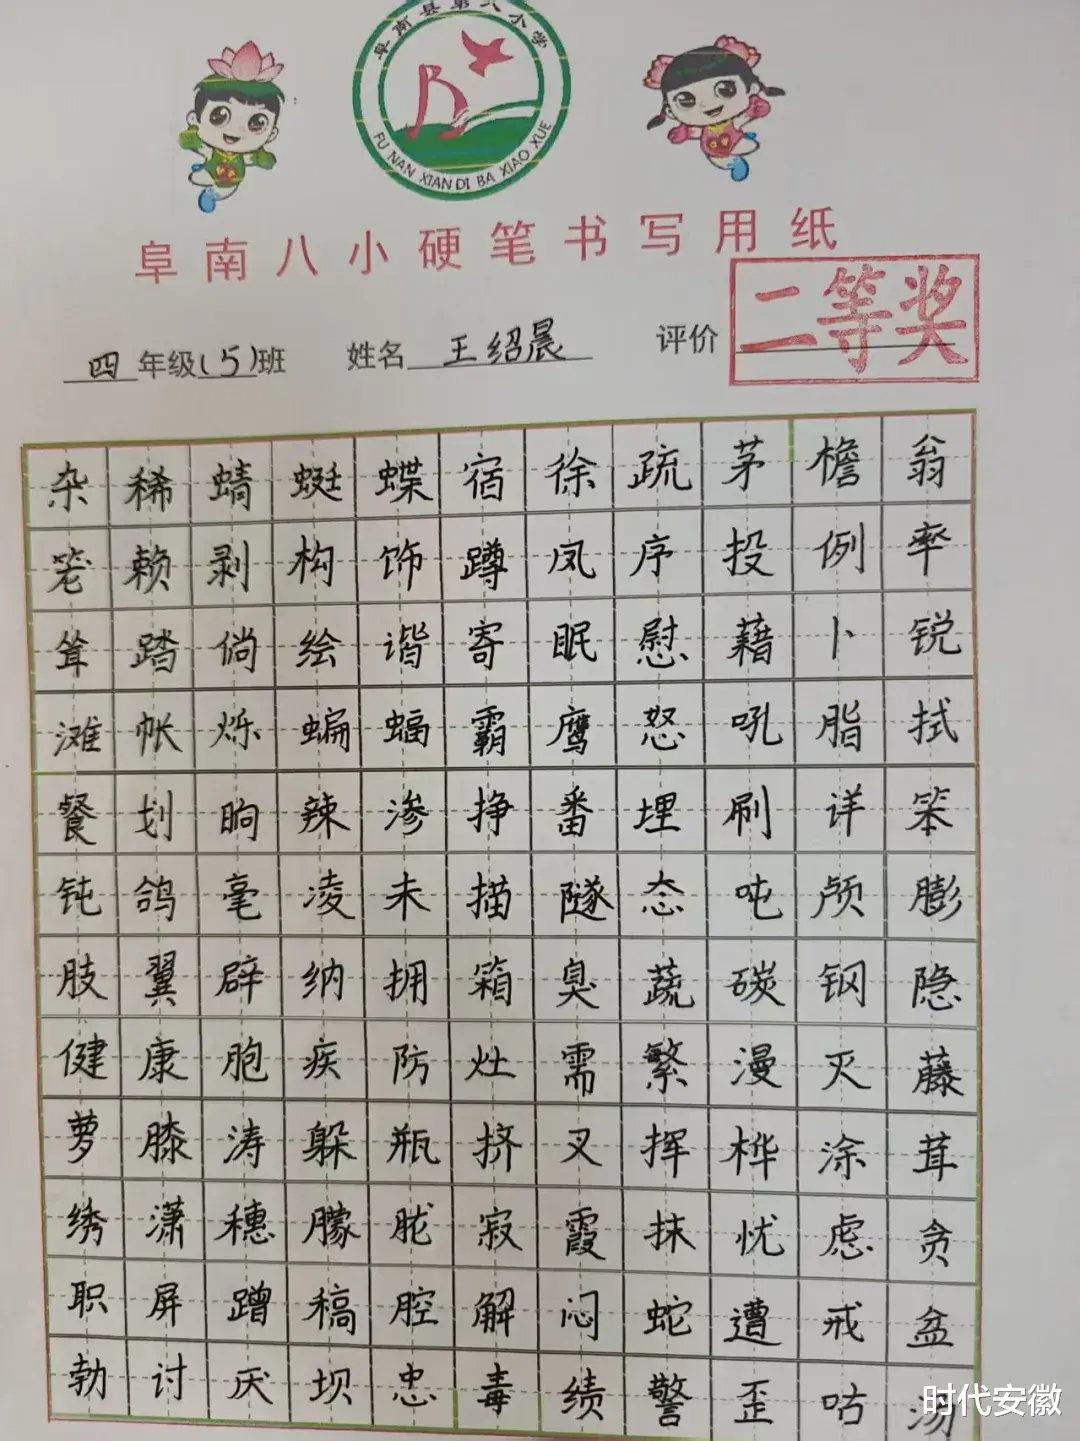 阜南县第八小学
FU NAN XIAN DI BA XIAO XUE
阜南八小硬笔书写用纸
四年级(5)班 姓名 王绍晨 评价 二等奖
杂稀蜻蜓蝶宿徐疏茅檐翁
笼赖剥构饰蹲凤序投例率
耸踏倘绘谐寄眠慰藉卜锐
滩帐烁蝙蝠霸鹰怒吼脂拭
餐划晌辣渗挣番埋刷详笨
钝鸽毫凌未描隧态吨颅膨
肢翼辟纳拥箱臭蔬碳钢隐
健康胞疾防灶需繁漫灭藤
萝膝涛躲瓶挤叉挥桦涂茸
绣潇穗朦胧寂霞抹忧虑贪
职屏蹭稿腔解闷蛇遭戒盆
勃讨厌坝忠毒绩警歪咕汤
时代安徽